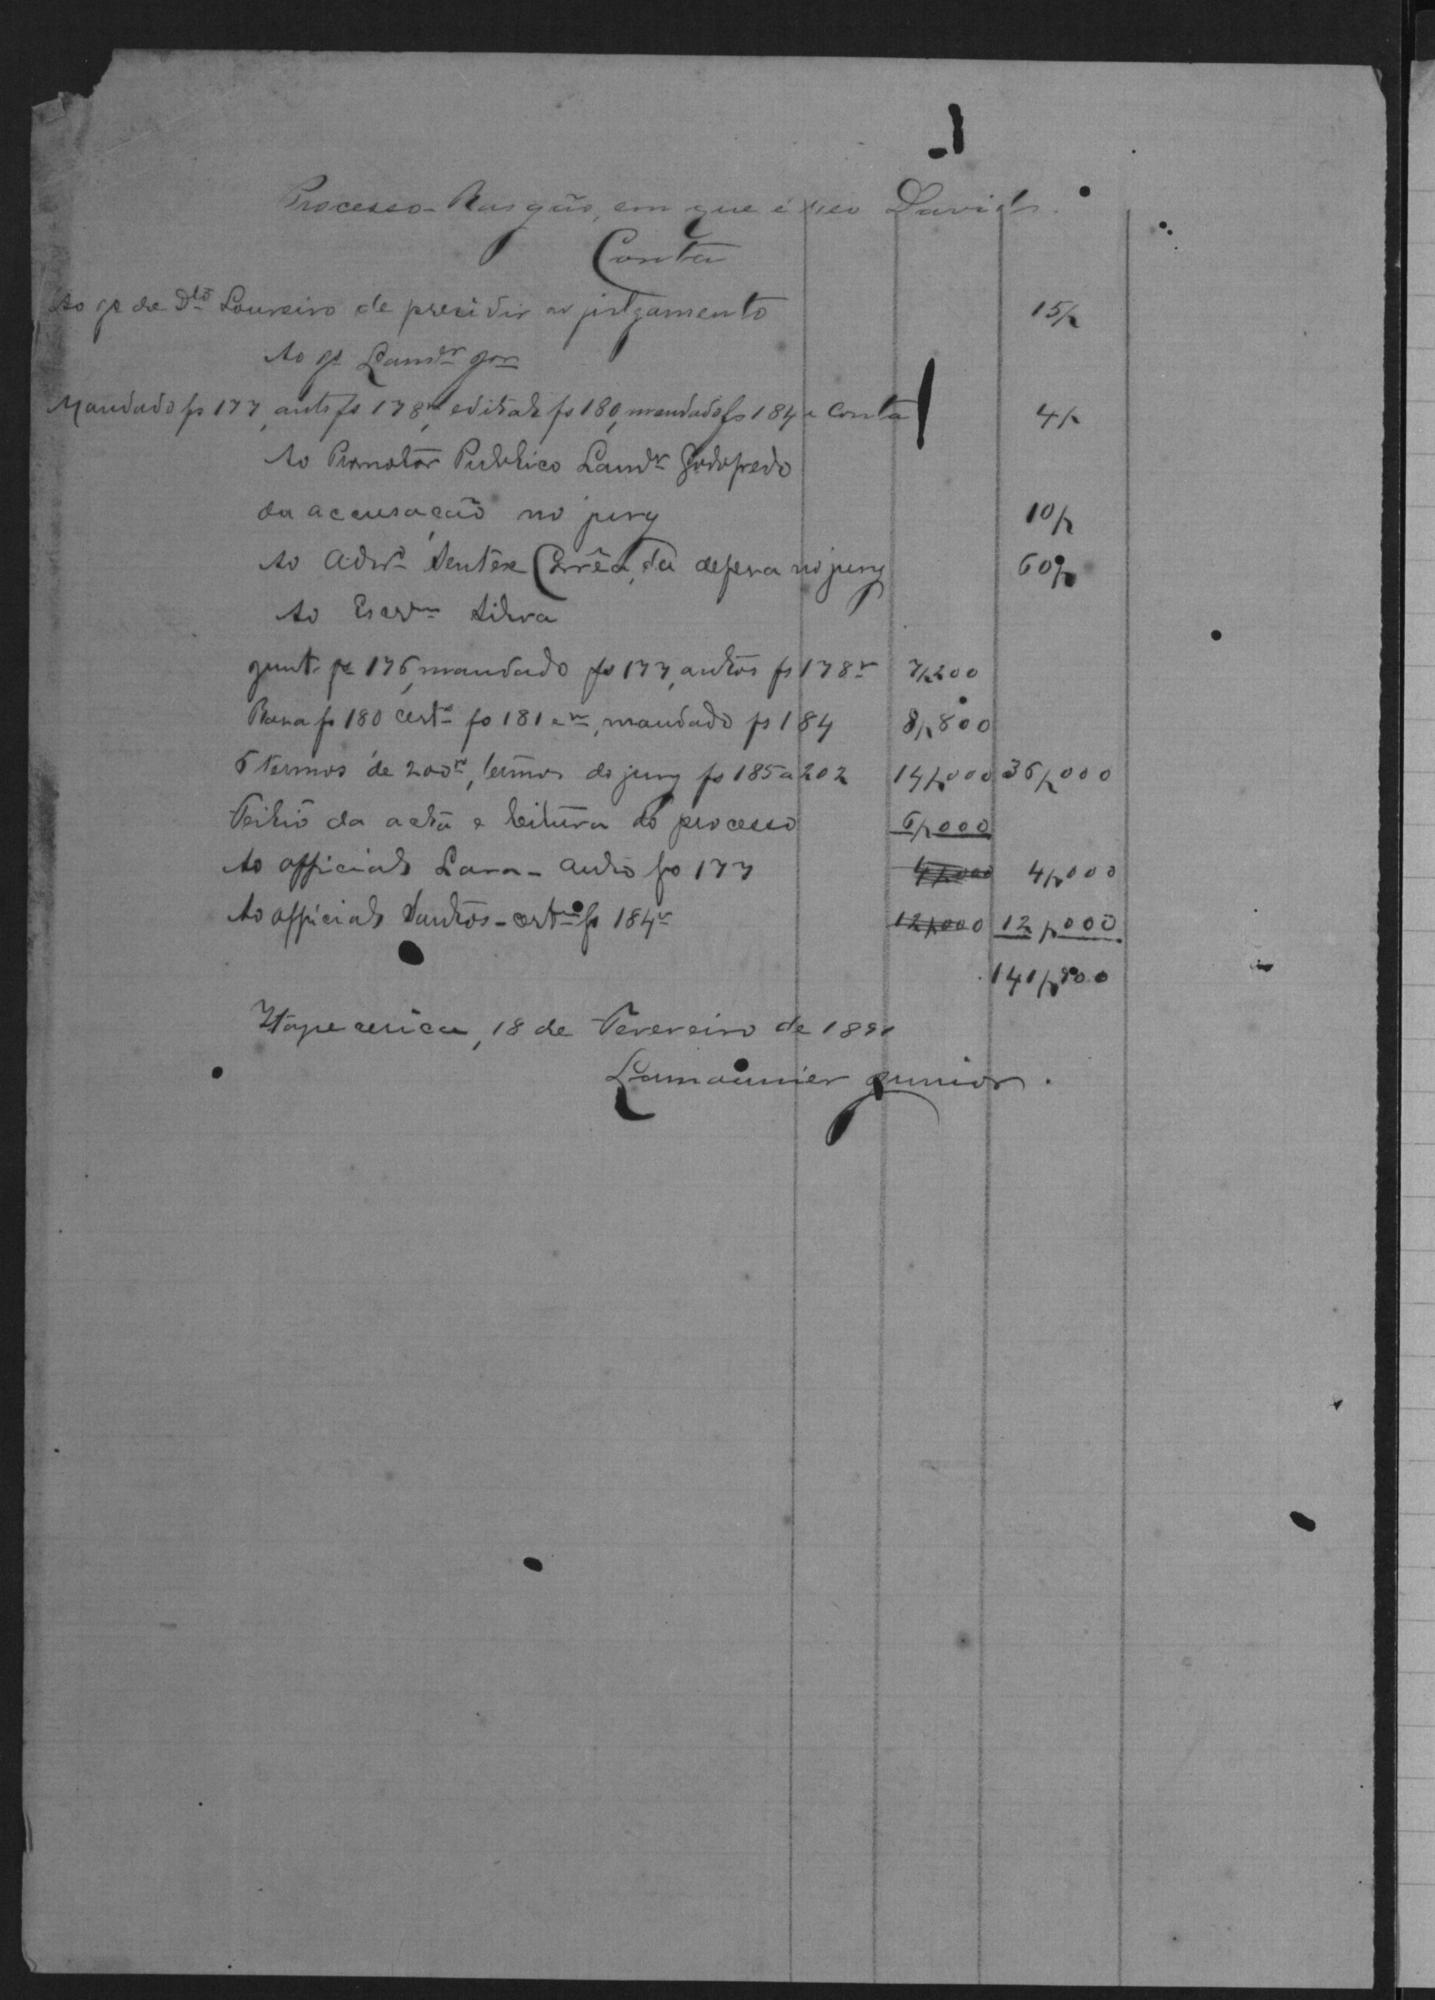 Processo - Rasgão, em que é réo David.
Conta
Ao J. de Dto Loureiro de presidir ao julgamento 15$
Ao J. Lamer Jor
Mandado fs 177, auto fs 178v, edital fs 180, mandado fs 184 e Conta 4$
Ao Promotor Publico Lamer Godofredo
da accusação no jury 10$
Ao Advo Corrêa, da defesa no jury 60$
Ao Escrm Silva
Junt. fs 176, mandado fs 177, autos fs 178v 7$200
fs 180 certo fs 181 e v, mandado fs 184 8$800
6 termos de 200rs, termos do jury fs 185 a 202 14$000 36$000
Feitio da acta e leitura do processo 6$000
Ao official Lara - auto fs 177 4$000 4$000
Ao official Santos - certm fs 184v 12$000 12$000
141$000
Itapecerica, 18 de Fevereiro de 1891
Lamounier Junior.